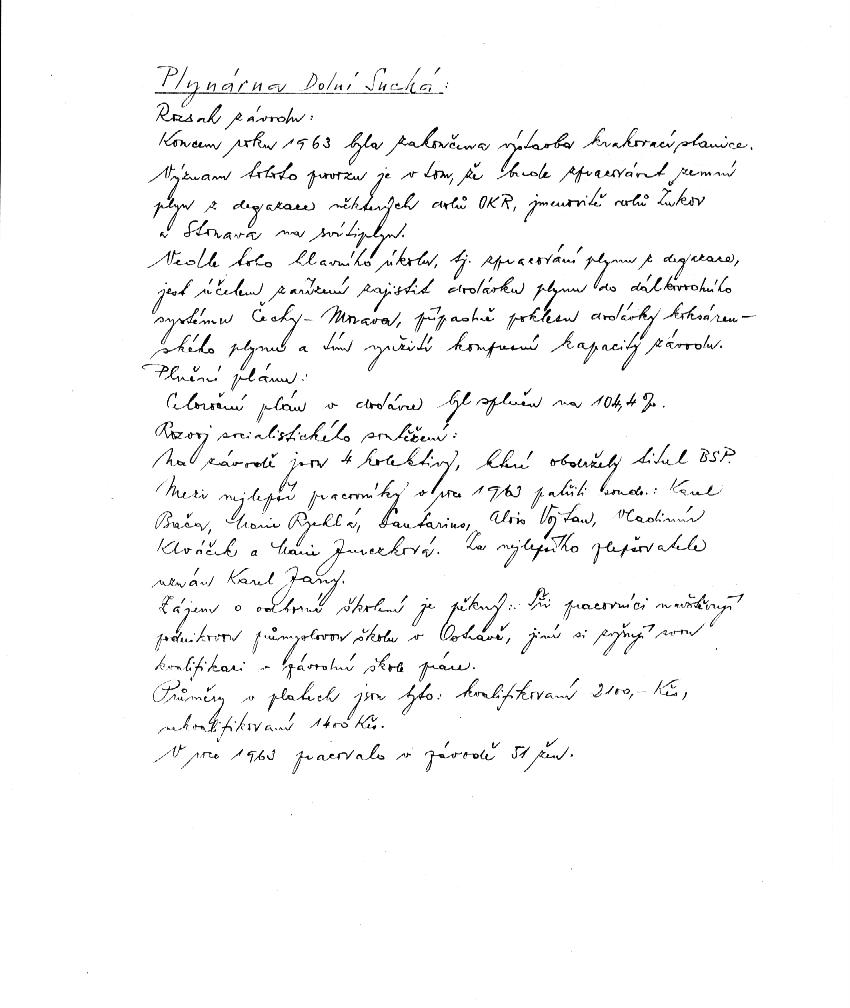 Plynárna Dolní Suchá:
Rozsah závodu:
Koncem roku 1963 byla zakončena výstavba krakovací stanice.
Význam tohoto provozu je v tom, že bude zpracovávat zemní
plyn z degazace některých dolů OKR, jmenovitě dolů Žukov
a Stonava na svítiplyn.
Vedle toho hlavního úkolu, tj. zpracování plynu z degazace,
jest účelem zařízení zajistit dodávku plynu do dálkovodního
systému Čechy - Morava, případně poklesu dodávky koksáren-
ského plynu a tím využití kompresní kapacity závodu.
Plnění plánu:
Celoroční plán v dodávce byl splněn na 104,4 %.
Rozvoj socialistického soutěžení:
Na závodě jsou 4 kolektivy, které obdržely titul BSP.
Mezi nejlepší pracovníky v roce 1963 patřili soudr.: Karel
Bača, Marie Rychlá, Santarius, Alois Vojtan, Vladimír
Klváček a Marie Jureczková. Za nejlepšího zlepšovatele
uznán Karel Jany.
Zájem o odborné školení je pěkný: Tři pracovníci navštěvují
podnikovou průmyslovou školu v Ostravě, jiní si zvyšují svou
kvalifikaci v závodní škole práce.
Průměry v platech jsou tyto: kvalifikovaní 2100,- Kčs,
nekvalifikovaní 1400 Kčs.
V roce 1963 pracovalo v závodě 51 žen.